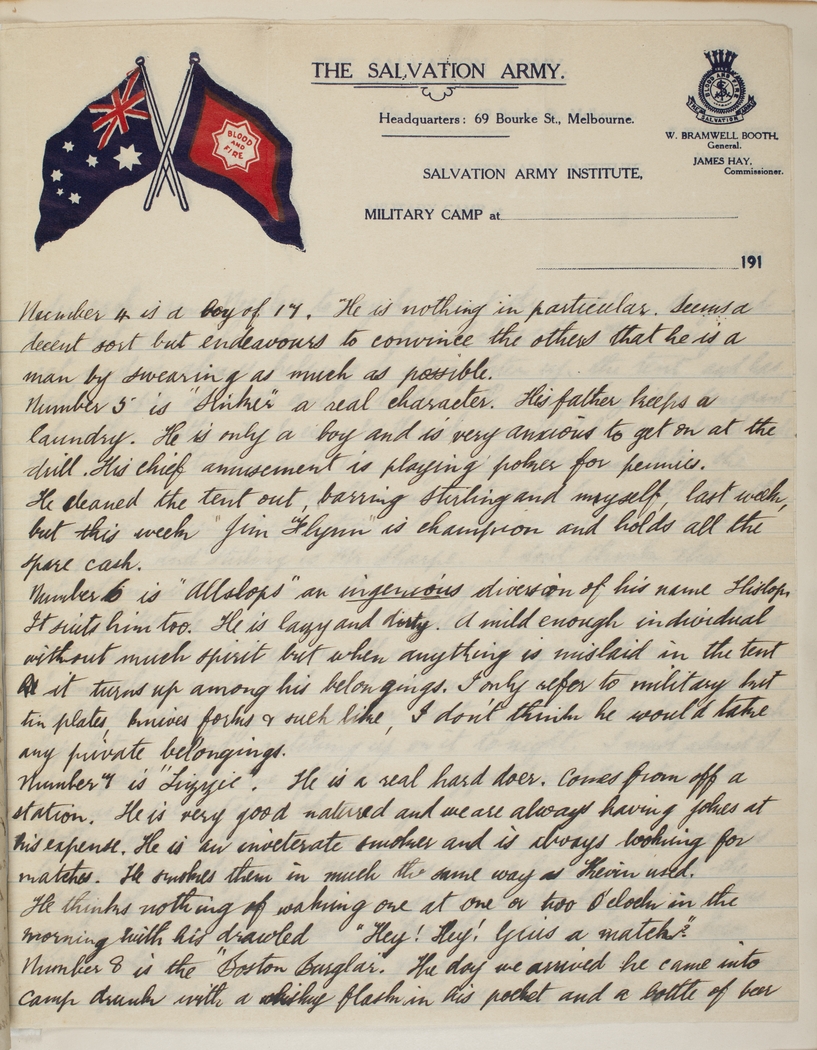 THE SALVATION ARMY.
Headquarters: 69 Bourke St., Melbourne.
BLOOD AND FIRE
THE SALVATION ARMY
W. BRAMWELL BOOTH,
General.
JAMES HAY,
Commissioner.
BLOOD
AND
FIRE
SALVATION ARMY INSTITUTE,
MILITARY CAMP at
191
Number 4 is a boy of 17. He is nothing in particular. Seems a
decent sort but endeavours to convince the others that he is a
man by swearing as much as possible.
Number 5 is "Stinker" a real character. His father keeps a
laundry. He is only a boy and is very anxious to get on at the
drill. His chief amusement is playing poker for pennies.
He cleaned the tent out, barring Stirling and myself, last week,
but this week "Jim Flynn" is champion and holds all the
spare cash.
Number 6 is "Allslops" an ingenious diversion of his name Hislop.
It suits him too. He is lazy and dirty. A mild enough individual
without much spirit but when anything is mislaid in the tent
it turns up among his belongings. I only refer to military kit
tin plates, knives forks & such like, I don't think he would take
any private belongings.
Number 7 is "Lizzie". He is a real hard doer. Comes from off a
station. He is very good natured and we are always having jokes at
his expense. He is an inveterate smoker and is always looking for
matches. He smokes them in much the same way as Kevin used.
He thinks nothing of waking one at one or two O'clock in the
morning with his drawled "Hey! Hey! Gius a match"?
Number 8 is the "Boston Burglar". The day we arrived he came into
camp drunk with a whisky flask in his pocket and a bottle of beer